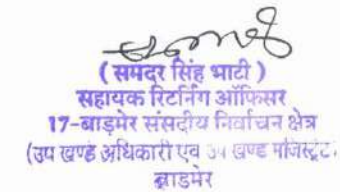 ( समदर सिंह भाटी )
सहायक रिटर्निंग ऑफिसर
17-बाड़मेर संसदीय निर्वाचन क्षेत्र
(उप खण्ड अधिकारी एवं उप खण्ड मजिस्ट्रेट,
बाडमेर